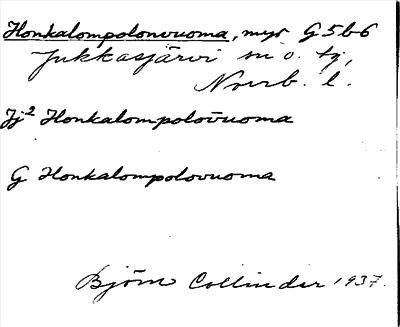 Honkalompolonvuoma, myr G5b6
Jukkasjärvi sn o. tg,
Norrb. l.
Jj² Honkalompolōvuoma
G Honkalompolovuoma
Björn Collinder 1937.